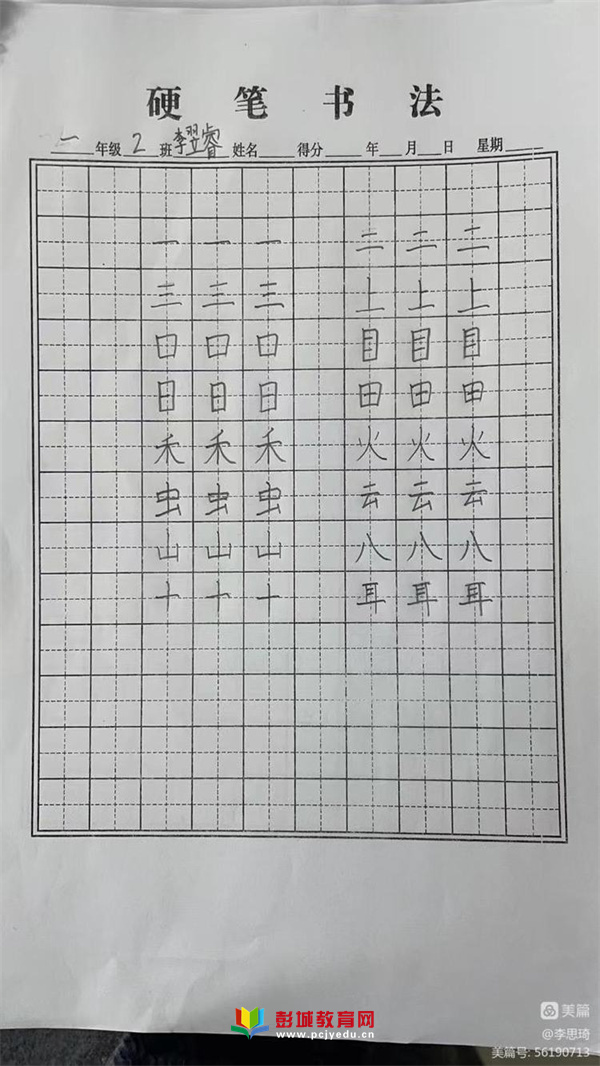 硬笔书法
一年级2班李翌睿姓名 得分 年 月 日 星期
一 一 一 二 二 二
三 三 三 上 上 上
口 口 口 目 目 目
日 日 日 田 田 田
禾 禾 禾 火 火 火
虫 虫 虫 云 云 云
山 山 山 八 八 八
十 十 十 耳 耳 耳
彭城教育网
www.pcjyedu.cn
美篇
@李思琦
美篇号: 56190713